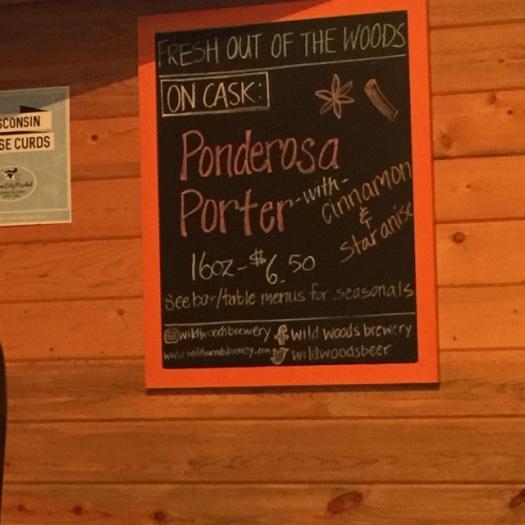 FRESH OUT OF THE WOODS
ON CASK:
Ponderosa
Porter -with-
cinnamon
&
staranise
16oz - $6.50
see bar/table menus for seasonals
wildwoodsbrewery f wild woods brewery
www.wildwoodsbrewery.com wildwoodsbeer
SCONSIN
SE CURDS